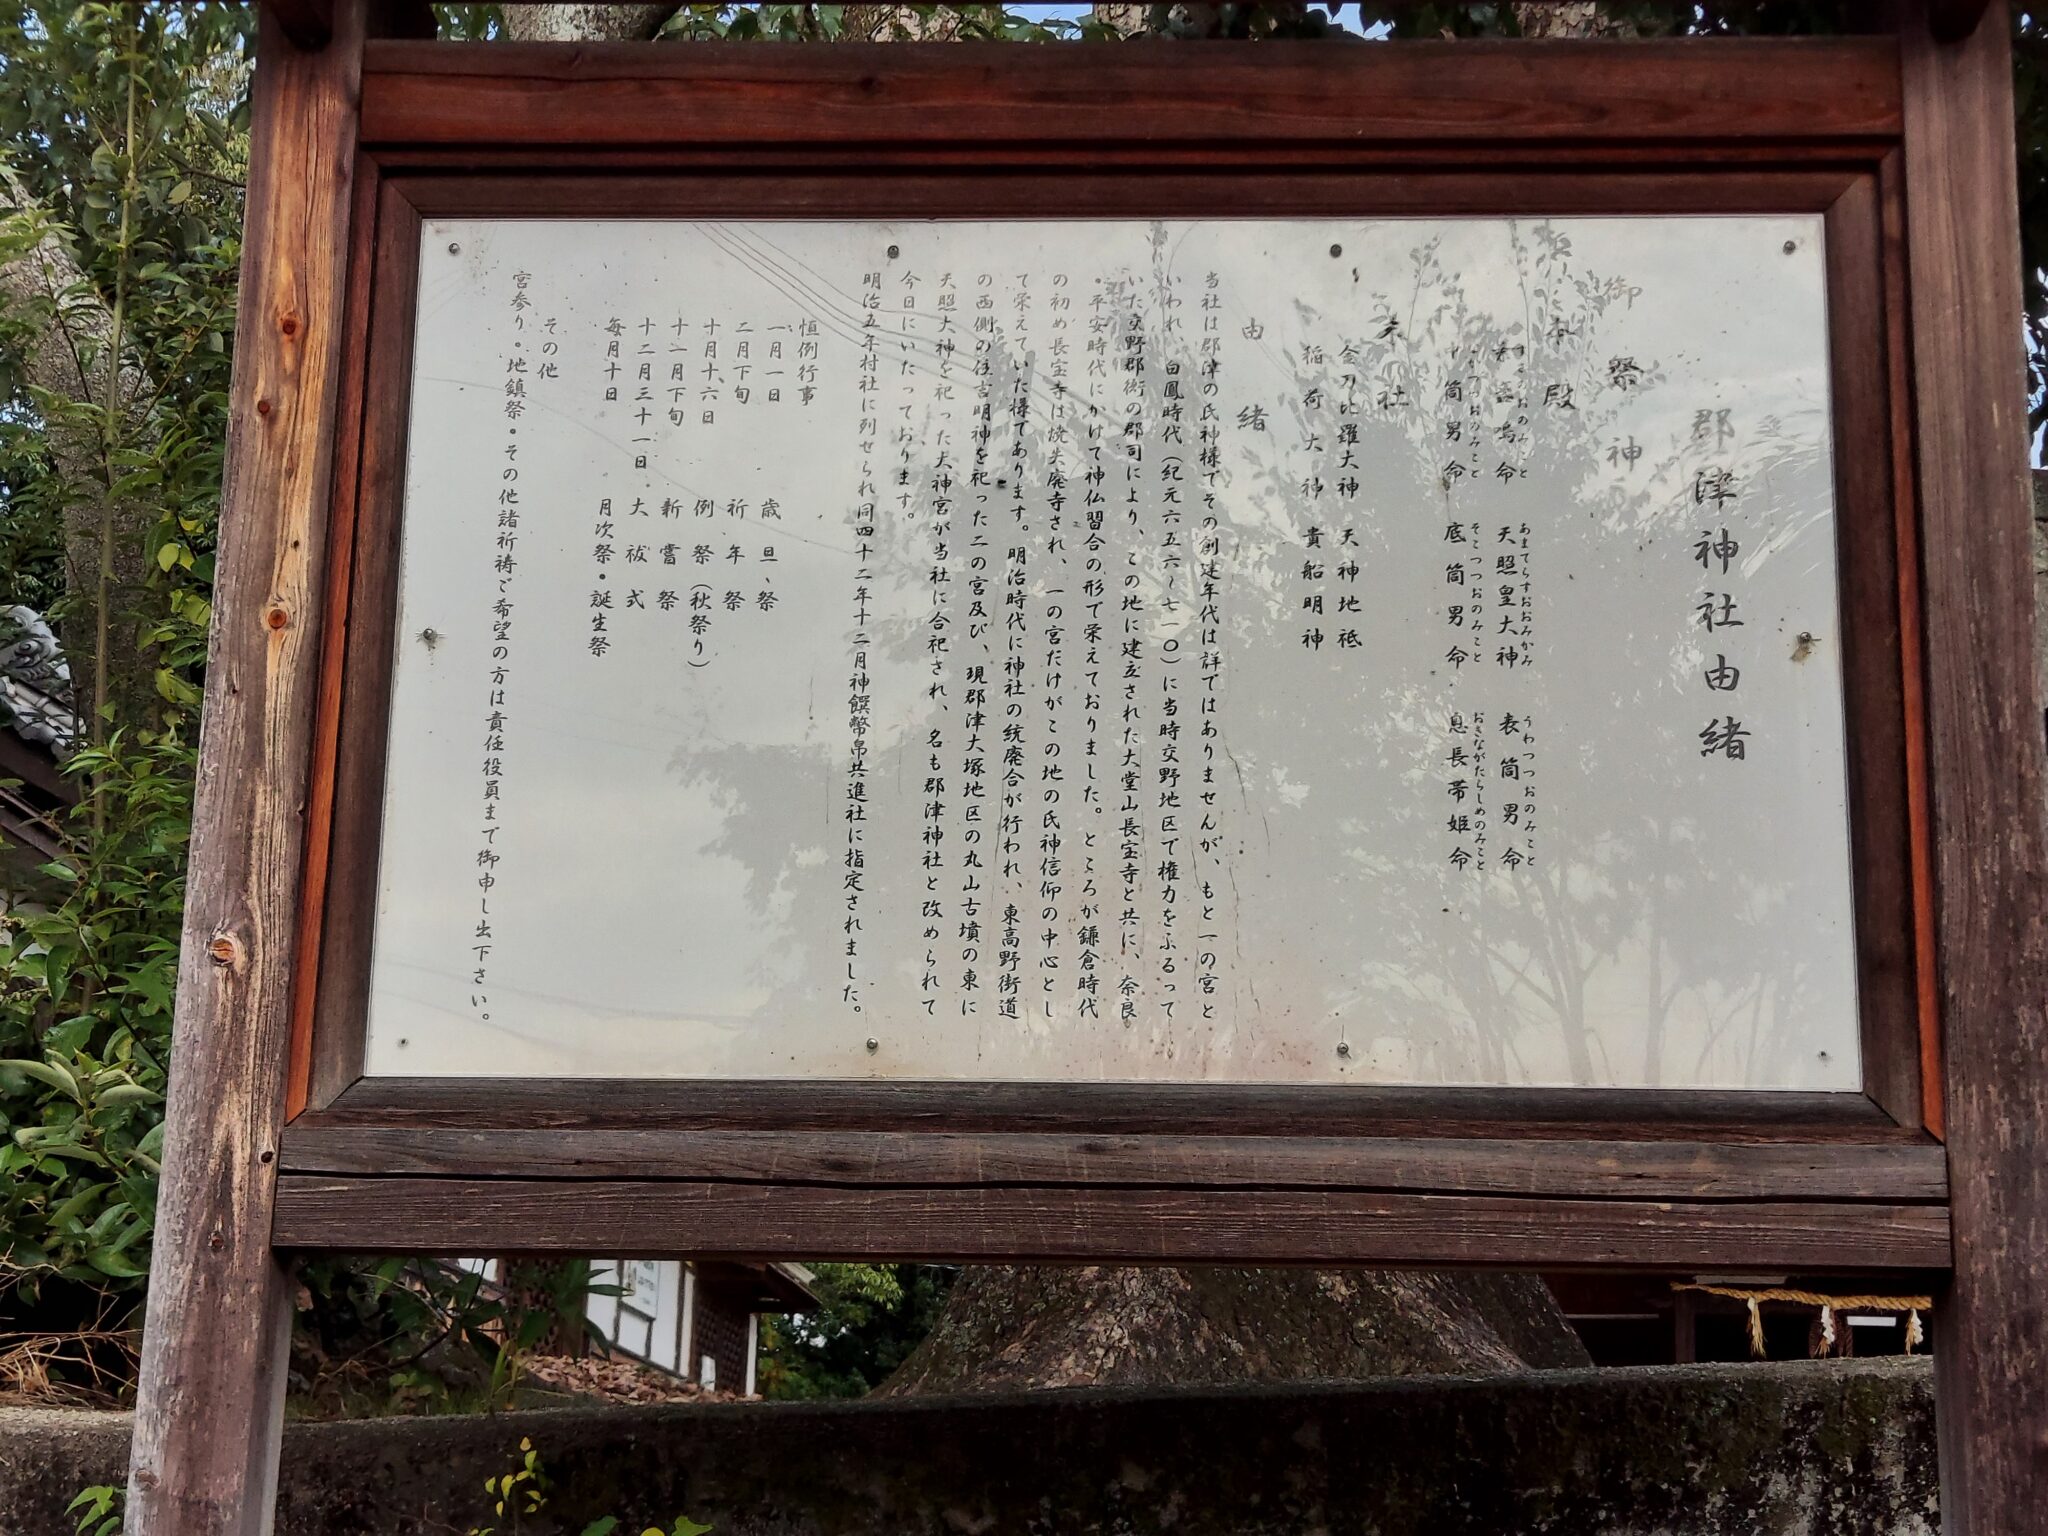 郡津神社由緒
御祭神
本殿
素盞嗚命 天照皇大神 表筒男命
すさのおのみこと あまてらすおおみかみ うわつつおのみこと
中筒男命 底筒男命 息長帯姫命
なかつつおのみこと そこつつおのみこと おきながたらしめのみこと
末社
金刀比羅大神 天神地祗
稲荷大神 貴船明神
由緒
当社は郡津の氏神様でその創建年代は詳ではありませんが、もと一の宮と
いわれ、白鳳時代(紀元六五六~七一〇)に当時交野地区で権力をふるって
いた交野郡衙の郡司により、この地に建立された大堂山長宝寺と共に、奈良
・平安時代にかけて神仏習合の形で栄えておりました。ところが鎌倉時代
の初め長宝寺は焼失廃寺され、一の宮だけがこの地の氏神信仰の中心とし
て栄えていた様であります。明治時代に神社の統廃合が行われ、東高野街道
の西側の住吉明神を祀った二の宮及び、現郡津大塚地区の丸山古墳の東に
天照大神を祀った大神宮が当社に合祀され、名も郡津神社と改められて
今日にいたっております。
明治五年村社に列せられ同四十二年十二月神饌幣帛共進社に指定されました。
恒例行事
一月一日 歳旦祭
二月下旬 祈年祭
十月十六日 例祭(秋祭り)
十一月下旬 新嘗祭
十二月三十一日 大祓式
毎月十日 月次祭・誕生祭
その他
宮参り。地鎮祭。その他諸祈祷ご希望の方は責任役員まで御申し出下さい。